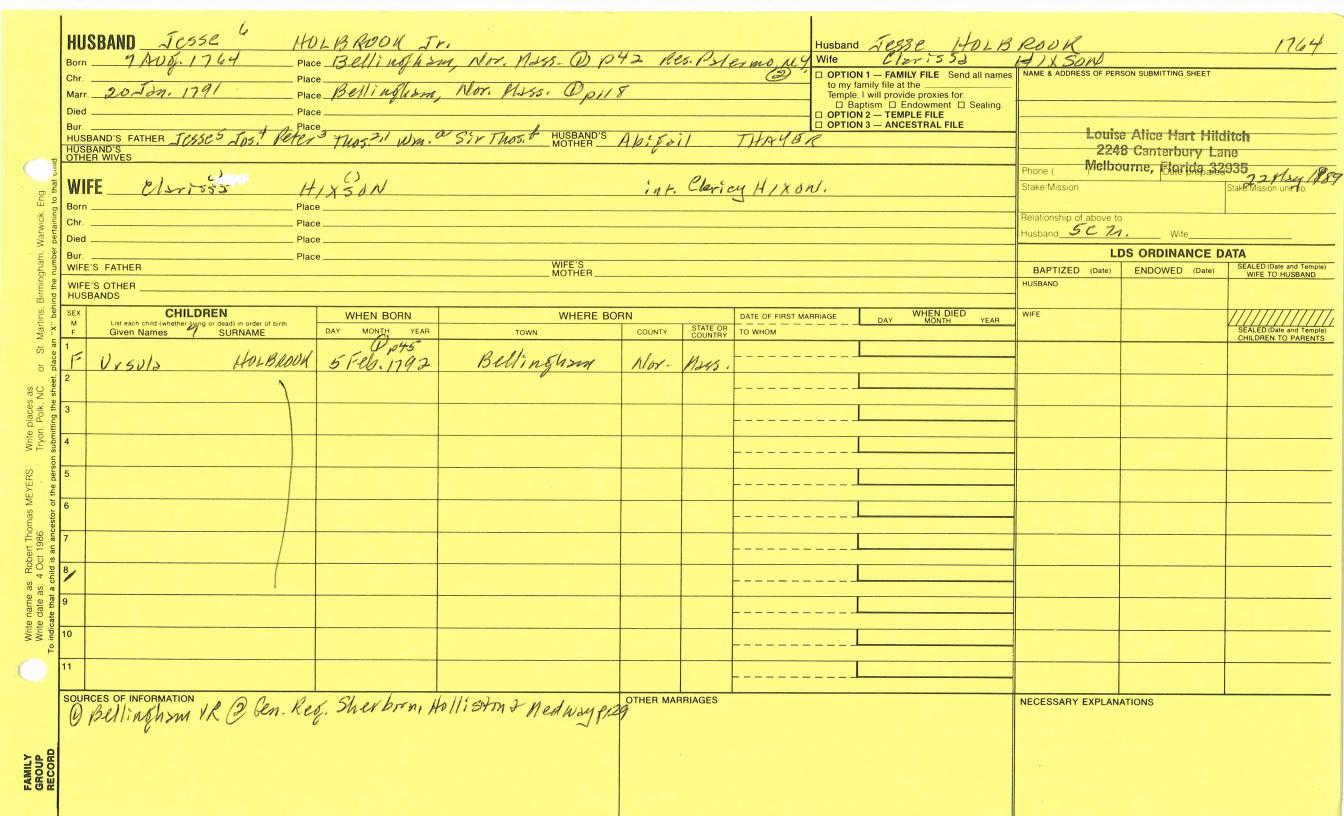 HUSBAND Jesse 6 HOLBROOK Jr.
Born 7 Aug. 1764 Place Bellingham, Nor. Mass. ① p42 Res. Palermo, N.Y. ②
Chr. Place
Marr. 20 Jan. 1791 Place Bellingham, Nor. Mass. ① p118
Died Place
Bur. Place
HUSBAND'S FATHER Jesse5 Jos.4 Peter3 Thos.2,1 Wm.a Sir Thos.A HUSBAND'S MOTHER Abigail THAYER
HUSBAND'S OTHER WIVES
Husband Jesse HOLBROOK 1764
Wife Clarissa HIXSON
☐ OPTION 1 — FAMILY FILE Send all names
to my family file at the
Temple. I will provide proxies for:
☐ Baptism ☐ Endowment ☐ Sealing.
☐ OPTION 2 — TEMPLE FILE
☐ OPTION 3 — ANCESTRAL FILE
NAME & ADDRESS OF PERSON SUBMITTING SHEET
Louise Alice Hart Hilditch
2248 Canterbury Lane
Melbourne, Florida 32935
Phone ( Date prepared 22 May 1989
Stake/Mission Stake/Mission unit no.
Relationship of above to
Husband 5C Wife
WIFE Clarissa HIXSON int. Claricy HIXON.
Born Place
Chr. Place
Died Place
Bur. Place
WIFE'S FATHER WIFE'S MOTHER
WIFE'S OTHER HUSBANDS
LDS ORDINANCE DATA
BAPTIZED (Date) ENDOWED (Date) SEALED (Date and Temple) WIFE TO HUSBAND
HUSBAND
WIFE
SEALED (Date and Temple) CHILDREN TO PARENTS
SEX M F
CHILDREN
List each child (whether living or dead) in order of birth
Given Names 7 SURNAME
WHEN BORN
DAY MONTH YEAR
WHERE BORN
TOWN COUNTY STATE OR COUNTRY
DATE OF FIRST MARRIAGE
TO WHOM
WHEN DIED
DAY MONTH YEAR
① p45
1 F Ursula HOLBROOK 5 Feb. 1792 Bellingham Nor. Mass.
2
3
4
5
6
7
8
9
10
11
SOURCES OF INFORMATION
① Bellingham VR ② Gen. Reg. Sherborn, Holliston & Medway p129
OTHER MARRIAGES
NECESSARY EXPLANATIONS
Write name as: Robert Thomas MEYERS Write places as: Tryon, Polk, NC or St. Martins, Birmingham, Warwick, Eng.
Write date as: 4 Oct 1986
To indicate that a child is an ancestor of the person submitting the sheet, place an "x" behind the number pertaining to that child
FAMILY
GROUP
RECORD